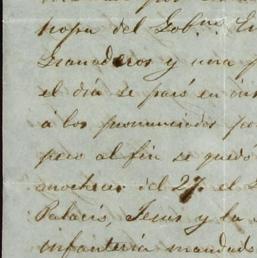 tropa del Gob.no En
Granaderos y una p
el dia se pasó en ins
á los pronunciados po
pero al fin se quedó
anochecer del 27. el
Palacio, Jesus y la
infantería mandad